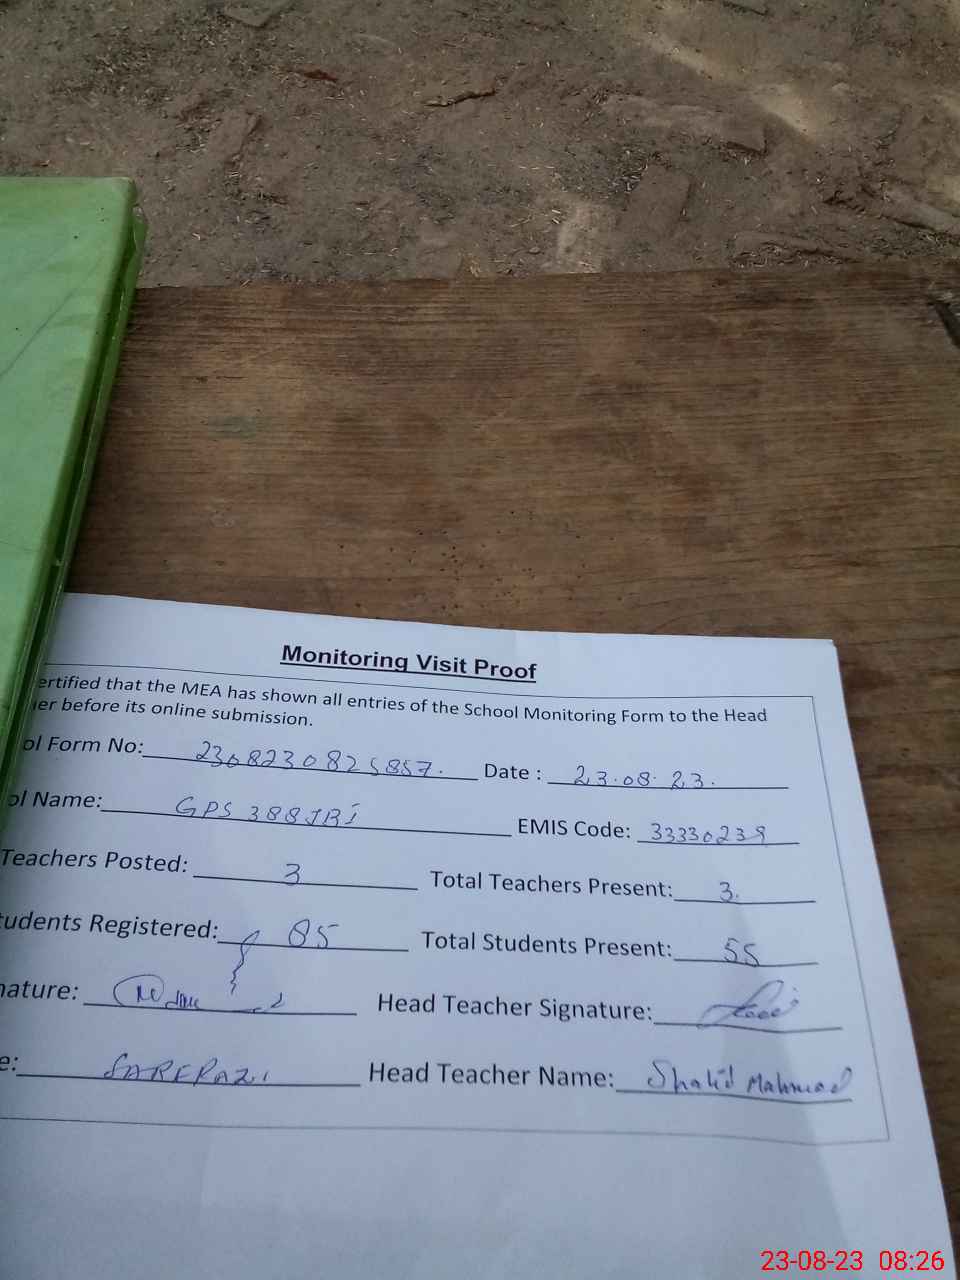 Monitoring Visit Proof
ertified that the MEA has shown all entries of the School Monitoring Form to the Head
er before its online submission.
ol Form No: 2308230825857. Date : 23.08.23.
ol Name: GPS 388JBi EMIS Code: 33330239
Teachers Posted: 3 Total Teachers Present: 3.
tudents Registered: 85 Total Students Present: 55
nature: Head Teacher Signature:
e: SARFRAZ Head Teacher Name: Shahid Mahmood
23-08-23 08:26